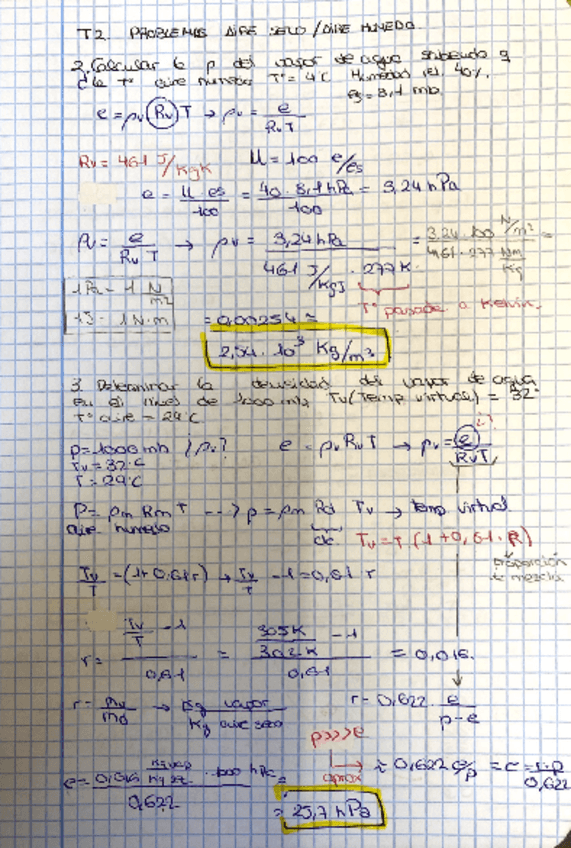 T2. PROBLEMAS AIRE SECO / AIRE HÚMEDO.
2. Calcular la ρ del vapor de agua sabiendo q
d la Tª aire húmedo Tª = 4°C Humedad rel. 40%.
es = 8,1 mb.
e = ρv Rv T → ρv = e / RvT
Rv = 461 J/KgK U = 100 e/es
e = U es / 100 = 40 · 8,1 hPa / 100 = 3,24 hPa
ρv = e / RvT → ρv = 3,24 hPa / 461 J/KgJ · 277 K = 3,24 · 100 N/m² / 461 · 277 Nm/Kg =
1 Pa = 1 N/m²
1 J = 1 N·m
Tª pasada a Kelvin.
= 0,00254 =
2,54 · 10³ Kg/m³
3. Determinar la densidad del vapor de agua
en el nivel de 1000 mb, Tv (Temp virtual) = 32°
tª aire = 29°C
p = 1000 mb ¿ρv? e = ρv Rv T → ρv = e / RvT
¿?
Tv = 32°C
T = 29°C
P = ρm Rm T --> p = ρm Rd Tv → temp. virtual
aire húmedo
cte. Tv = T (1 + 0,61 · r)
proporción
de mezcla
Tv/T = (1 + 0.61 r) → Tv/T - 1 = 0,61 r
r = Tv/T - 1 / 0,61 = 305K/302K - 1 / 0,61 = 0,016.
r = mv/md → Kg vapor / Kg aire seco r = 0,622 · e / p-e
p>>>e
aprox → ≈ 0,622 e/p = e = r·p / 0,622
e = 0,016 Kg vap / Kg · 1000 hPa / 0,622 =
= 25,7 hPa